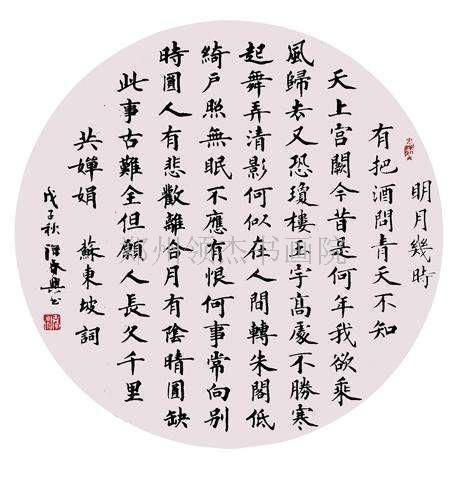 明月幾時
有把酒問青天不知
天上宫闕今昔是何年我欲乘
風歸去又恐瓊樓玉宇高處不勝寒
起舞弄清影何似在人間轉朱閣低
綺户照無眠不應有恨何事常向别
時圓人有悲歡離合月有陰晴圓缺
此事古難全但願人長久千里
共嬋娟 蘇東坡詞
戊子秋
郑州领杰书画院